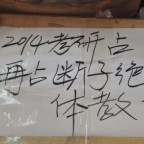 2014考研占
再占断子绝
体教